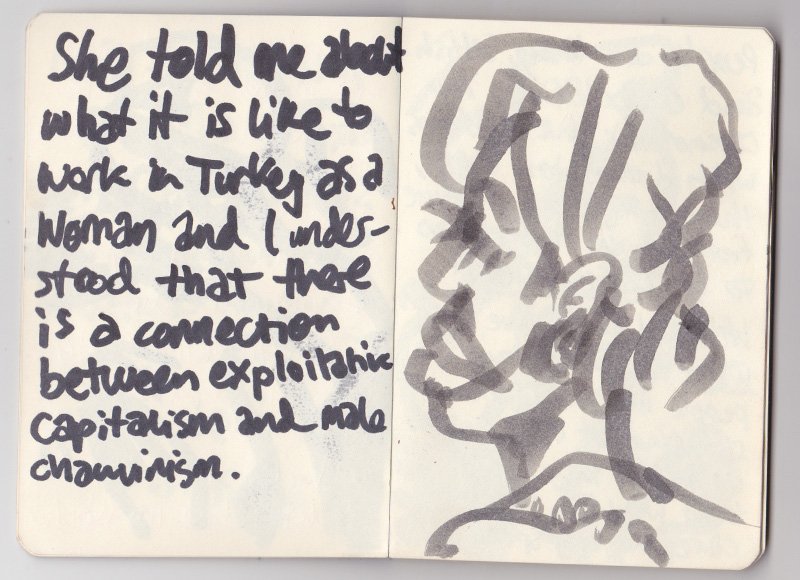 She told me about
what it is like to
work in Turkey as a
woman and I under-
stood that there
is a connection
between exploitative
capitalism and male
chauvinism.